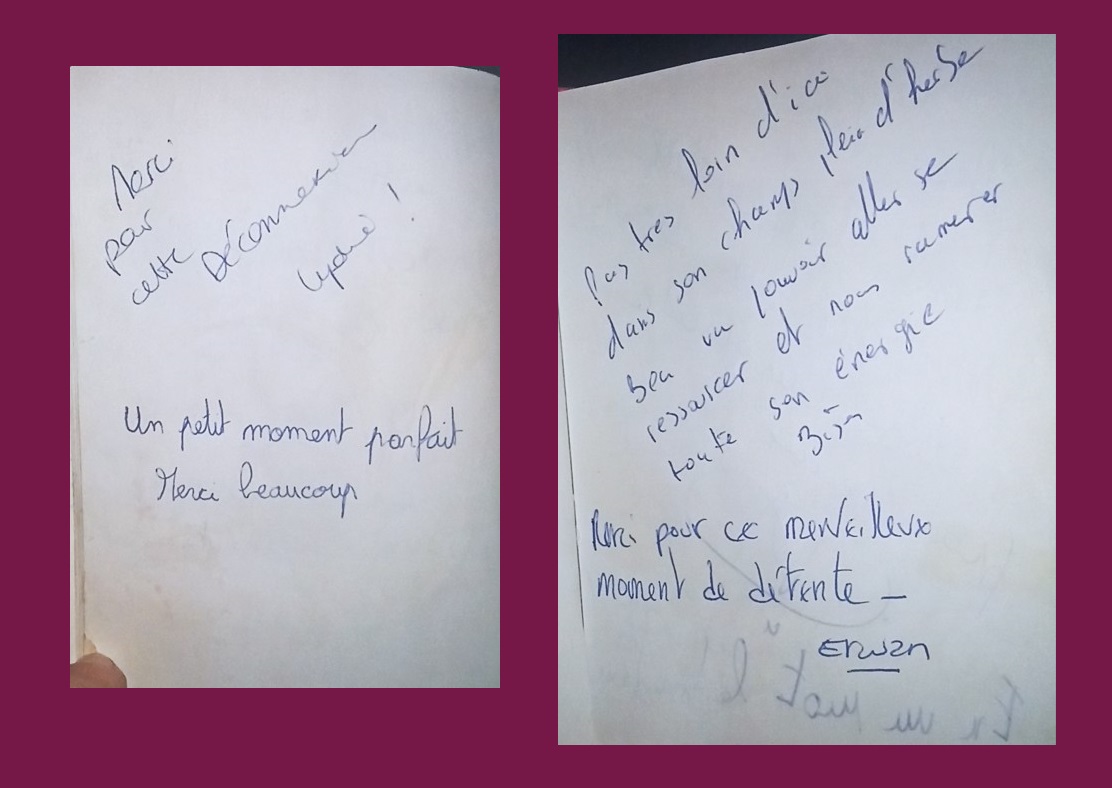 Merci
pour
cette Déconnexion
Lydie !
Un petit moment parfait
Merci beaucoup
Pas très loin d'ici
dans son champs plein d'herbe
Ben va pouvoir aller se
ressourcer et nous ramener
toute son énergie
Merci pour ce merveilleux
moment de détente _
Erwan